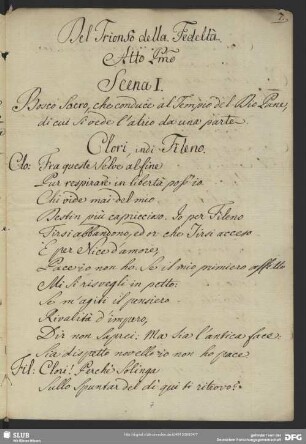 Del Trionfo della Fedeltà
Atto Pmo
Scena I.
Bosco Sacro, che conduce al Tempio del Dio Pane,
di cui si vede l'atrio da una parte
Clori, indi Fileno.
Clo: Fra queste Selve alfine
Pur respirare in libertà poss'io.
Chi vide mai del mio
Destin più capriccioso. Io per Fileno
Tirsi abbandono, ed or che Tirsi acceso
È per Nice d'amore,
Pace io non ho. Se il mio primiero affetto
Mi si risvegli in petto:
Se m'agiti il pensiero
Rivalità d'impero,
Dir non saprei: Ma sia l'antica face
Sia dispetto novello io non ho pace
Fil: Clori! Perchè solinga
Sullo spuntar del dì qui ti ritrovo?
SLUB
DFG